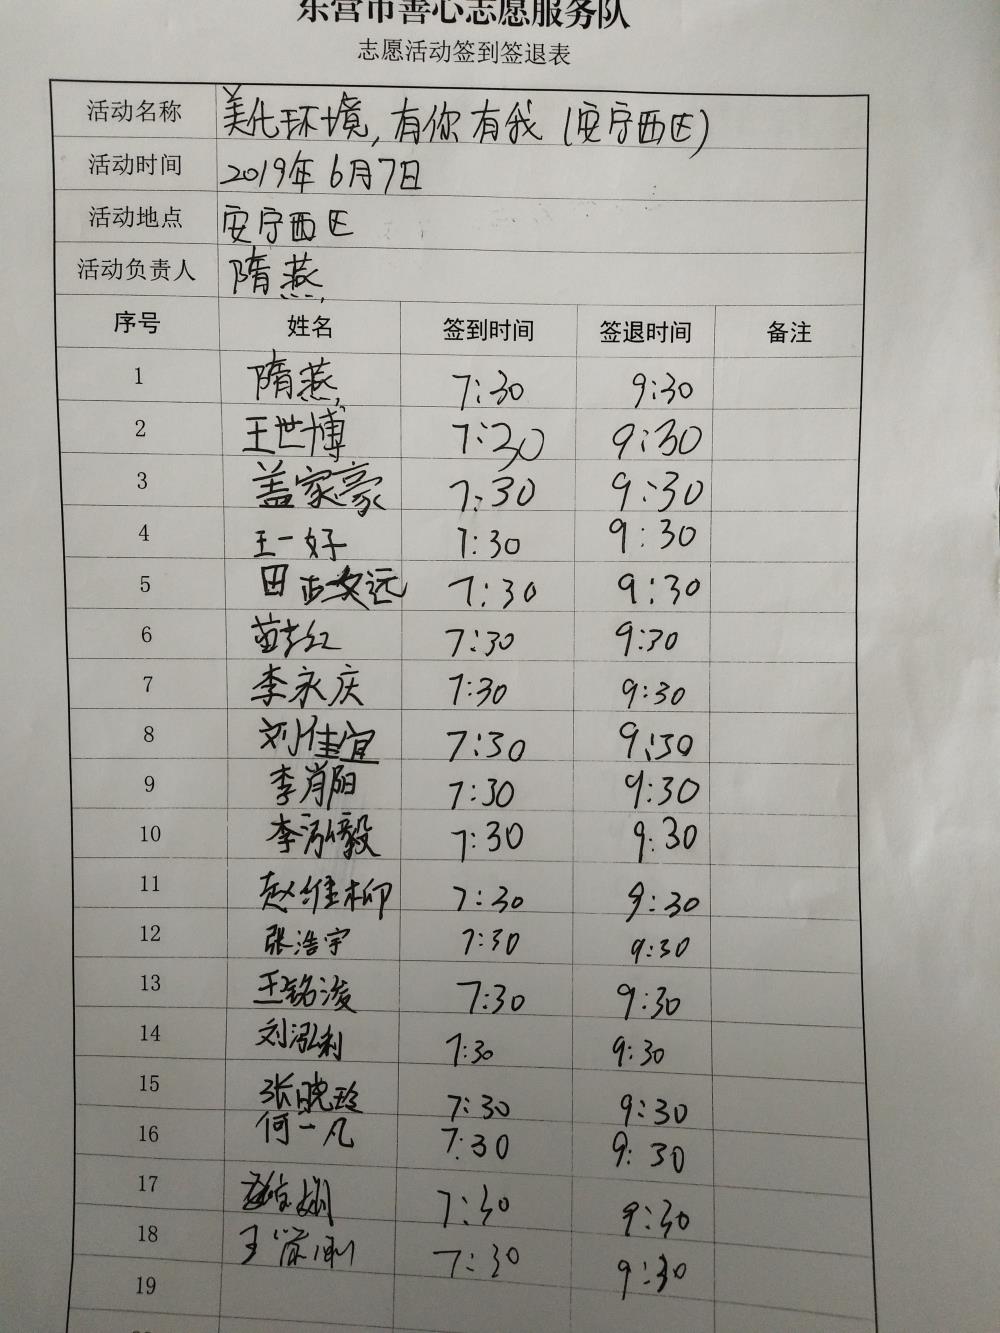 东营市善心志愿服务队
志愿活动签到签退表
活动名称 美化环境,有你有我(安宁西区)
活动时间 2019年6月7日
活动地点 安宁西区
活动负责人 隋燕
序号 姓名 签到时间 签退时间 备注
1 隋燕 7:30 9:30
2 王世博 7:30 9:30
3 盖家豪 7:30 9:30
4 王一好 7:30 9:30
5 田 远 7:30 9:30
6 红 7:30 9:30
7 李永庆 7:30 9:30
8 刘佳宜 7:30 9:30
9 李肖阳 7:30 9:30
10 李泓毅 7:30 9:30
11 赵维柳 7:30 9:30
12 张浩宇 7:30 9:30
13 王铭浚 7:30 9:30
14 刘泓利 7:30 9:30
15 张晓玲 7:30 9:30
16 何一凡 7:30 9:30
17 7:30 9:30
18 王 刚 7:30 9:30
19